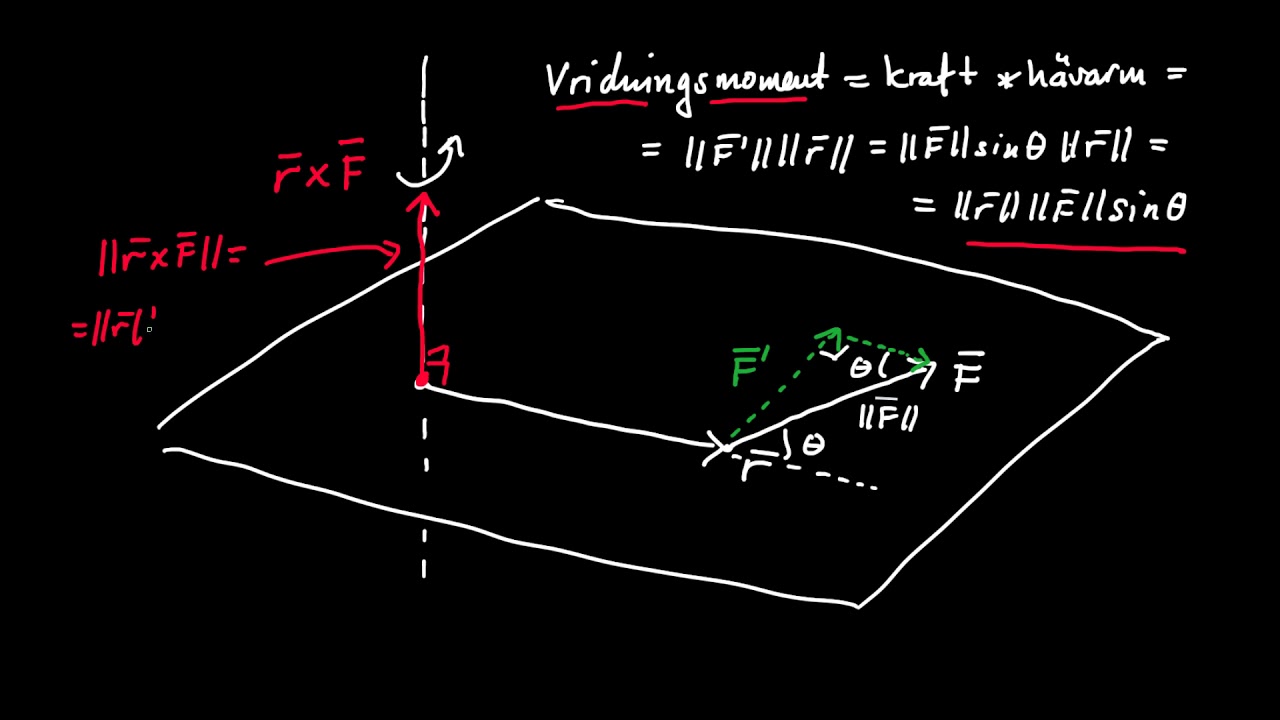 Vridningsmoment = kraft * hävarm =
= ||F̄'|| ||r̄|| = ||F̄|| sin θ ||r̄|| =
= ||r̄|| ||F̄|| sin θ
r̄ × F̄
||r̄ × F̄|| =
= ||r̄||
F̄'
θ
F̄
||F̄||
θ
r̄